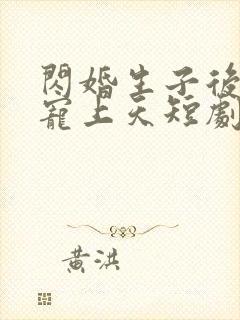 閃婚生子後
寵上天短劇
黃洪